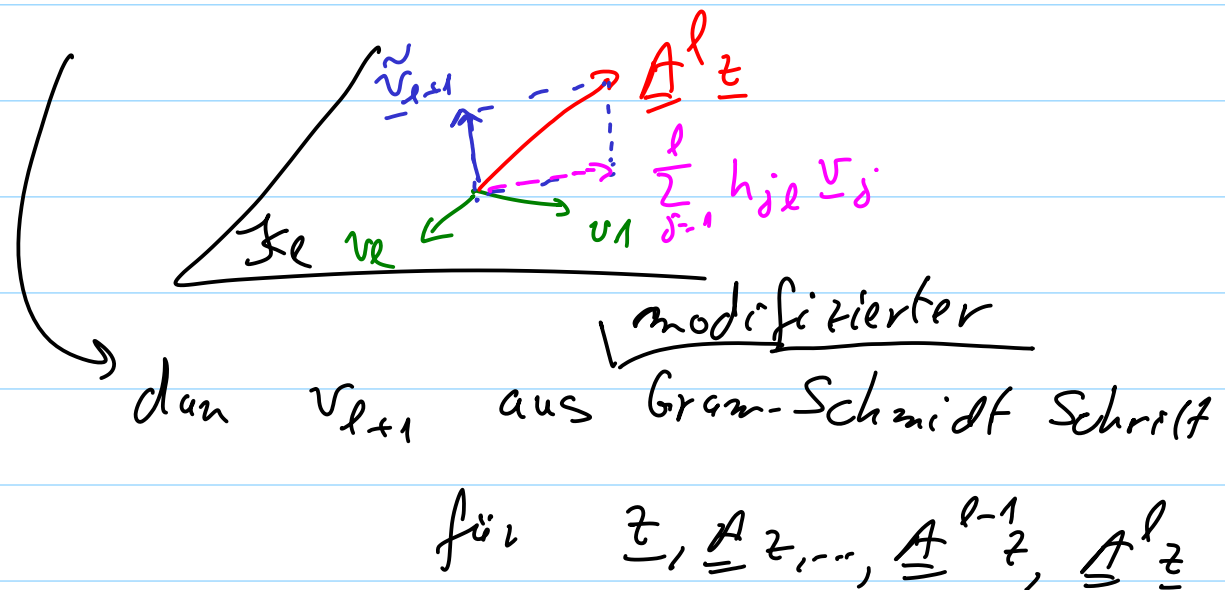 ṽ_{ℓ+1} A^ℓ z
∑_{j=1}^{ℓ} h_{jℓ} v_j
K_ℓ v_ℓ v1
modifizierter
dan v_{ℓ+1} aus Gram-Schmidt Schritt
für z, A z, ..., A^{ℓ-1} z, A^ℓ z